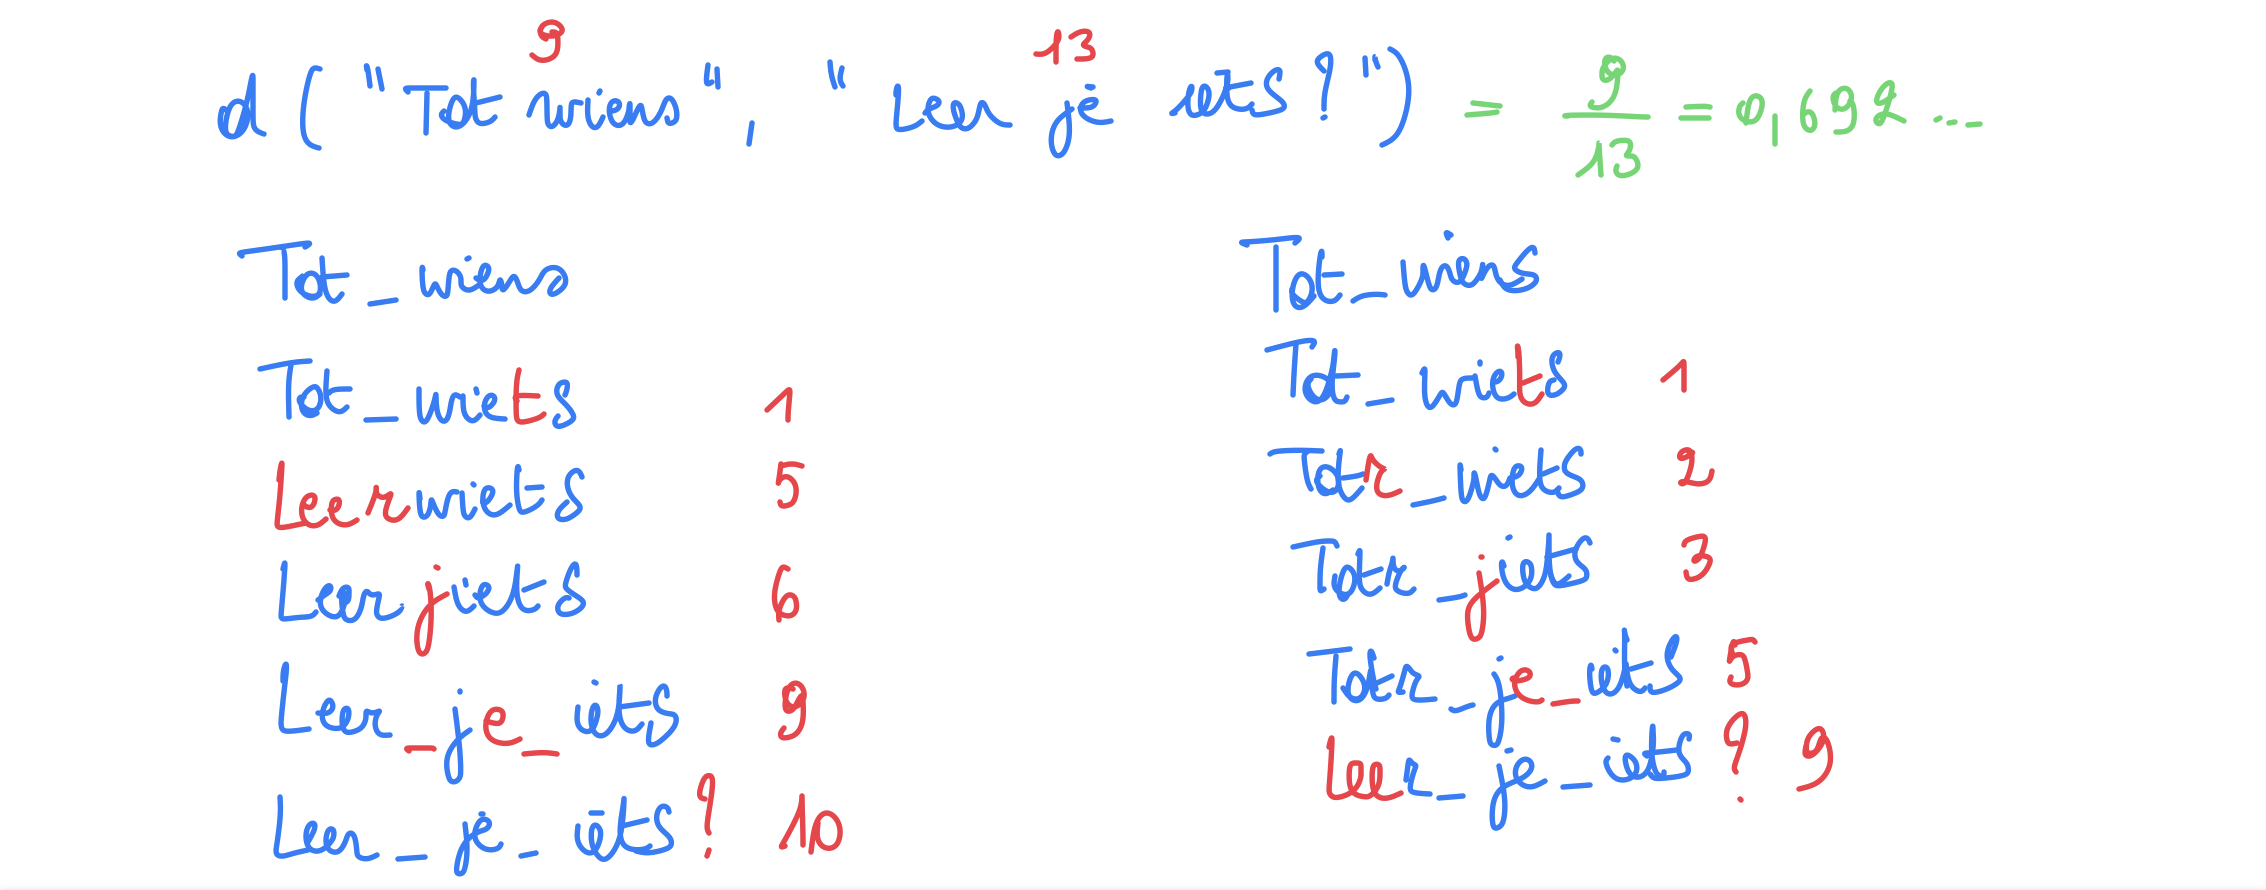 9 13
d ( "Tot wiens", "Leer je iets?") = 9/13 = 0,692...
Tot_wiens
Tot_wiets 1
Leerwiets 5
Leerjiets 6
Leer_je_iets 9
Leer_je_iets? 10
Tot_wiens
Tot_wiets 1
Totr_wiets 2
Totr_jiets 3
Totr_je_iets 5
Leer_je_iets? 9